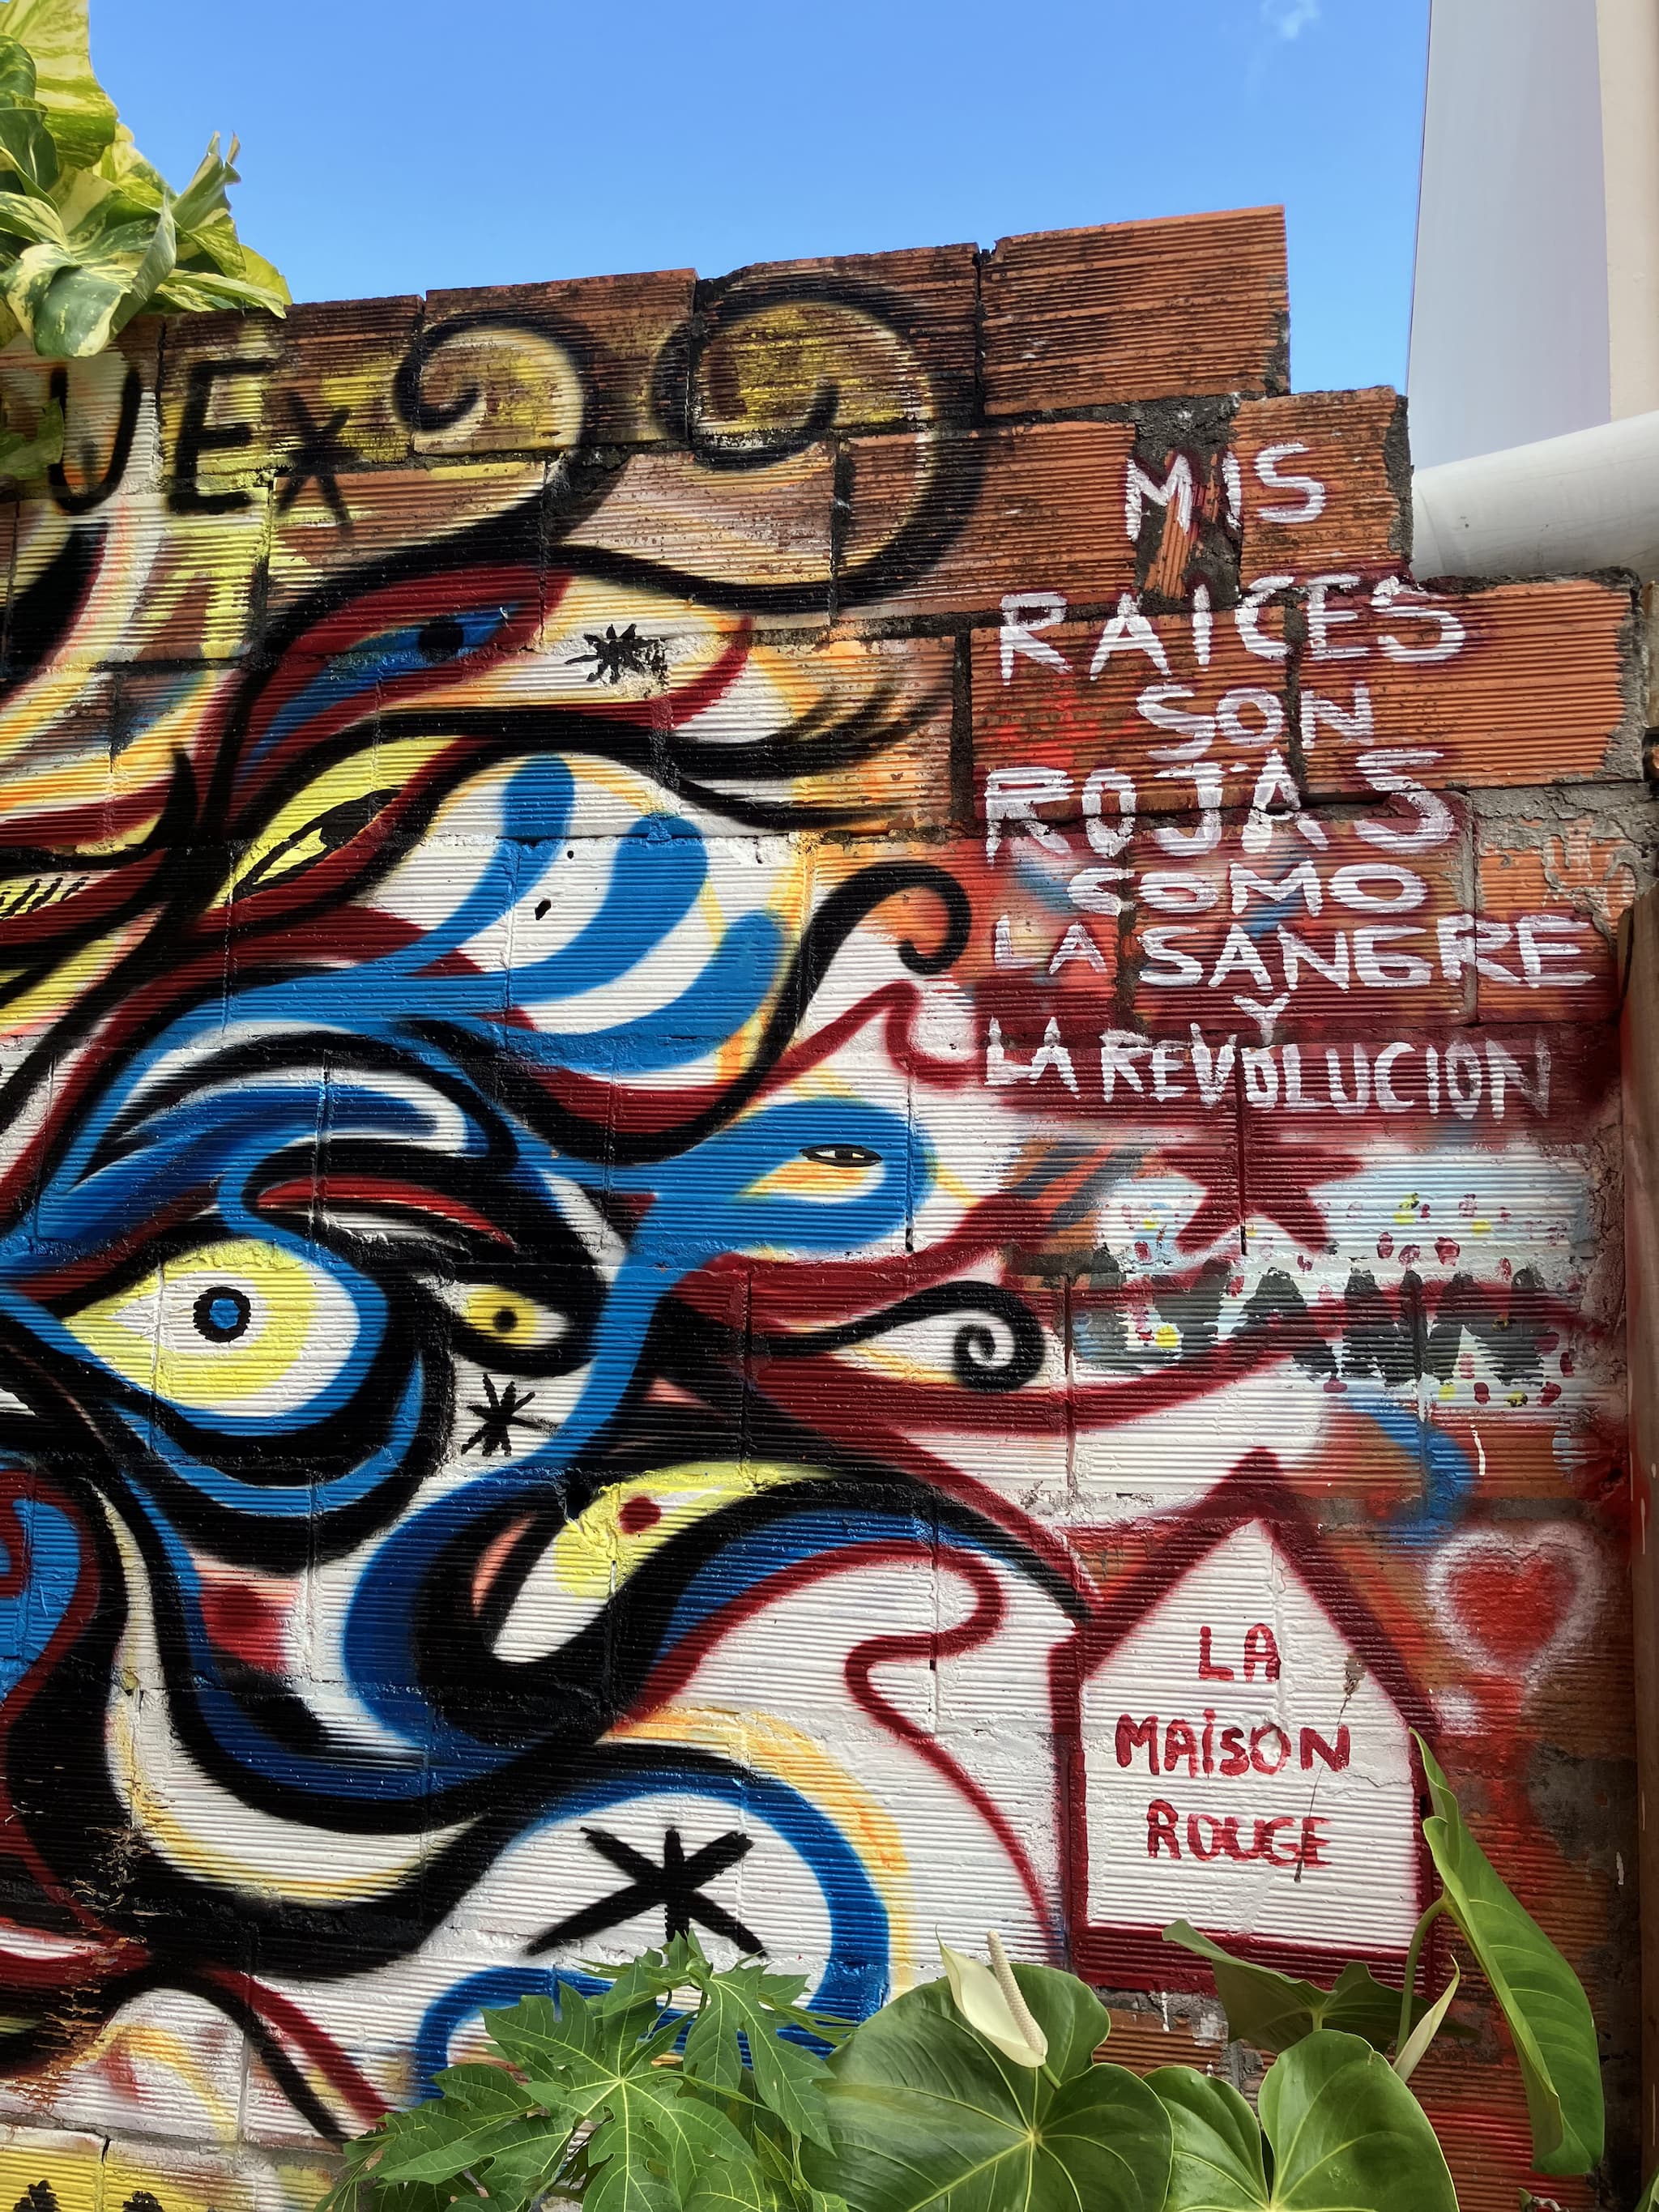 UEX
MIS
RAICES
SON
ROJAS
COMO
LA SANGRE
Y
LA REVOLUCION
LA
MAISON
ROUGE